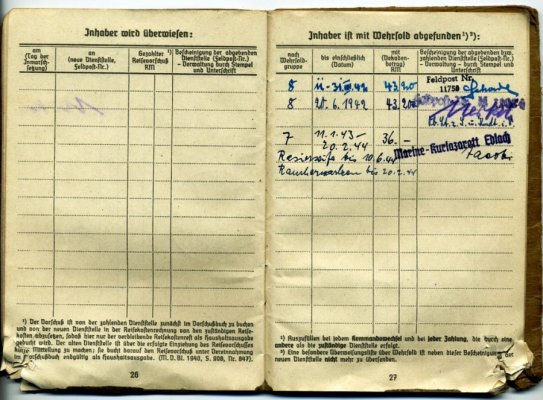 Inhaber wird überwiesen:
am
(Tag der
Inmarsch-
setzung)
an
(neue Dienststelle,
Feldpost-Nr.)
Gezahlter ¹)
Reisevorschuß
RM
Bescheinigung der abgebenden
Dienststelle (Feldpost-Nr.)
- Verwaltung - durch Stempel
und Unterschrift
¹) Der Vorschuß ist von der zahlenden Dienststelle zunächst im Vorschußbuch zu buchen
und von der neuen Dienststelle in der Reisekostenrechnung von den zuständigen Reise-
kosten abzusetzen, sodaß hier nur der verbleibende Reisekostenrest als Haushaltsausgabe
gebucht wird. Der alten Dienststelle ist über die erfolgte Einziehung des Reisevorschusses
kurze Mitteilung zu machen; sie bucht darauf den Reisevorschuß unter Vereinnahmung
im Vorschußbuch endgültig als Haushaltsausgabe. (M. D. Bl. 1940, S. 808, Nr. 847).
26
Inhaber ist mit Wehrsold abgefunden ¹) ²):
nach
Wehrsold-
gruppe
bis einschließlich
(Datum)
mit
(Dekaden-
betrag)
RM
Bescheinigung der abgebenden bzw.
zahlenden Dienststelle (Feldpost-Nr.)
- Verwaltung - durch Stempel
und Unterschrift
Feldpost Nr.
8 43.20 11750
8 20.6.1942 43.20
7 11.1.43- 36.-
20.2.44
Marine-Kurlazarett Edlach
bis 10.6.44
bis 20.2.44
¹) Auszufüllen bei jedem Kommandowechsel und bei jeder Zahlung, die durch eine
andere als die zuständige Dienststelle erfolgt.
²) Eine besondere Überweisungsliste über Wehrsold ist neben dieser Bescheinigung der
neuen Dienststelle nicht mehr zu übersenden.
27